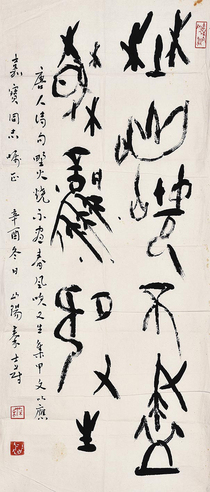 野火燒不盡
春風吹又生
唐人詩句野火燒不盡春風吹又生集甲文以應
嘉寶同志囑正 辛酉冬日山陽秦士蔚